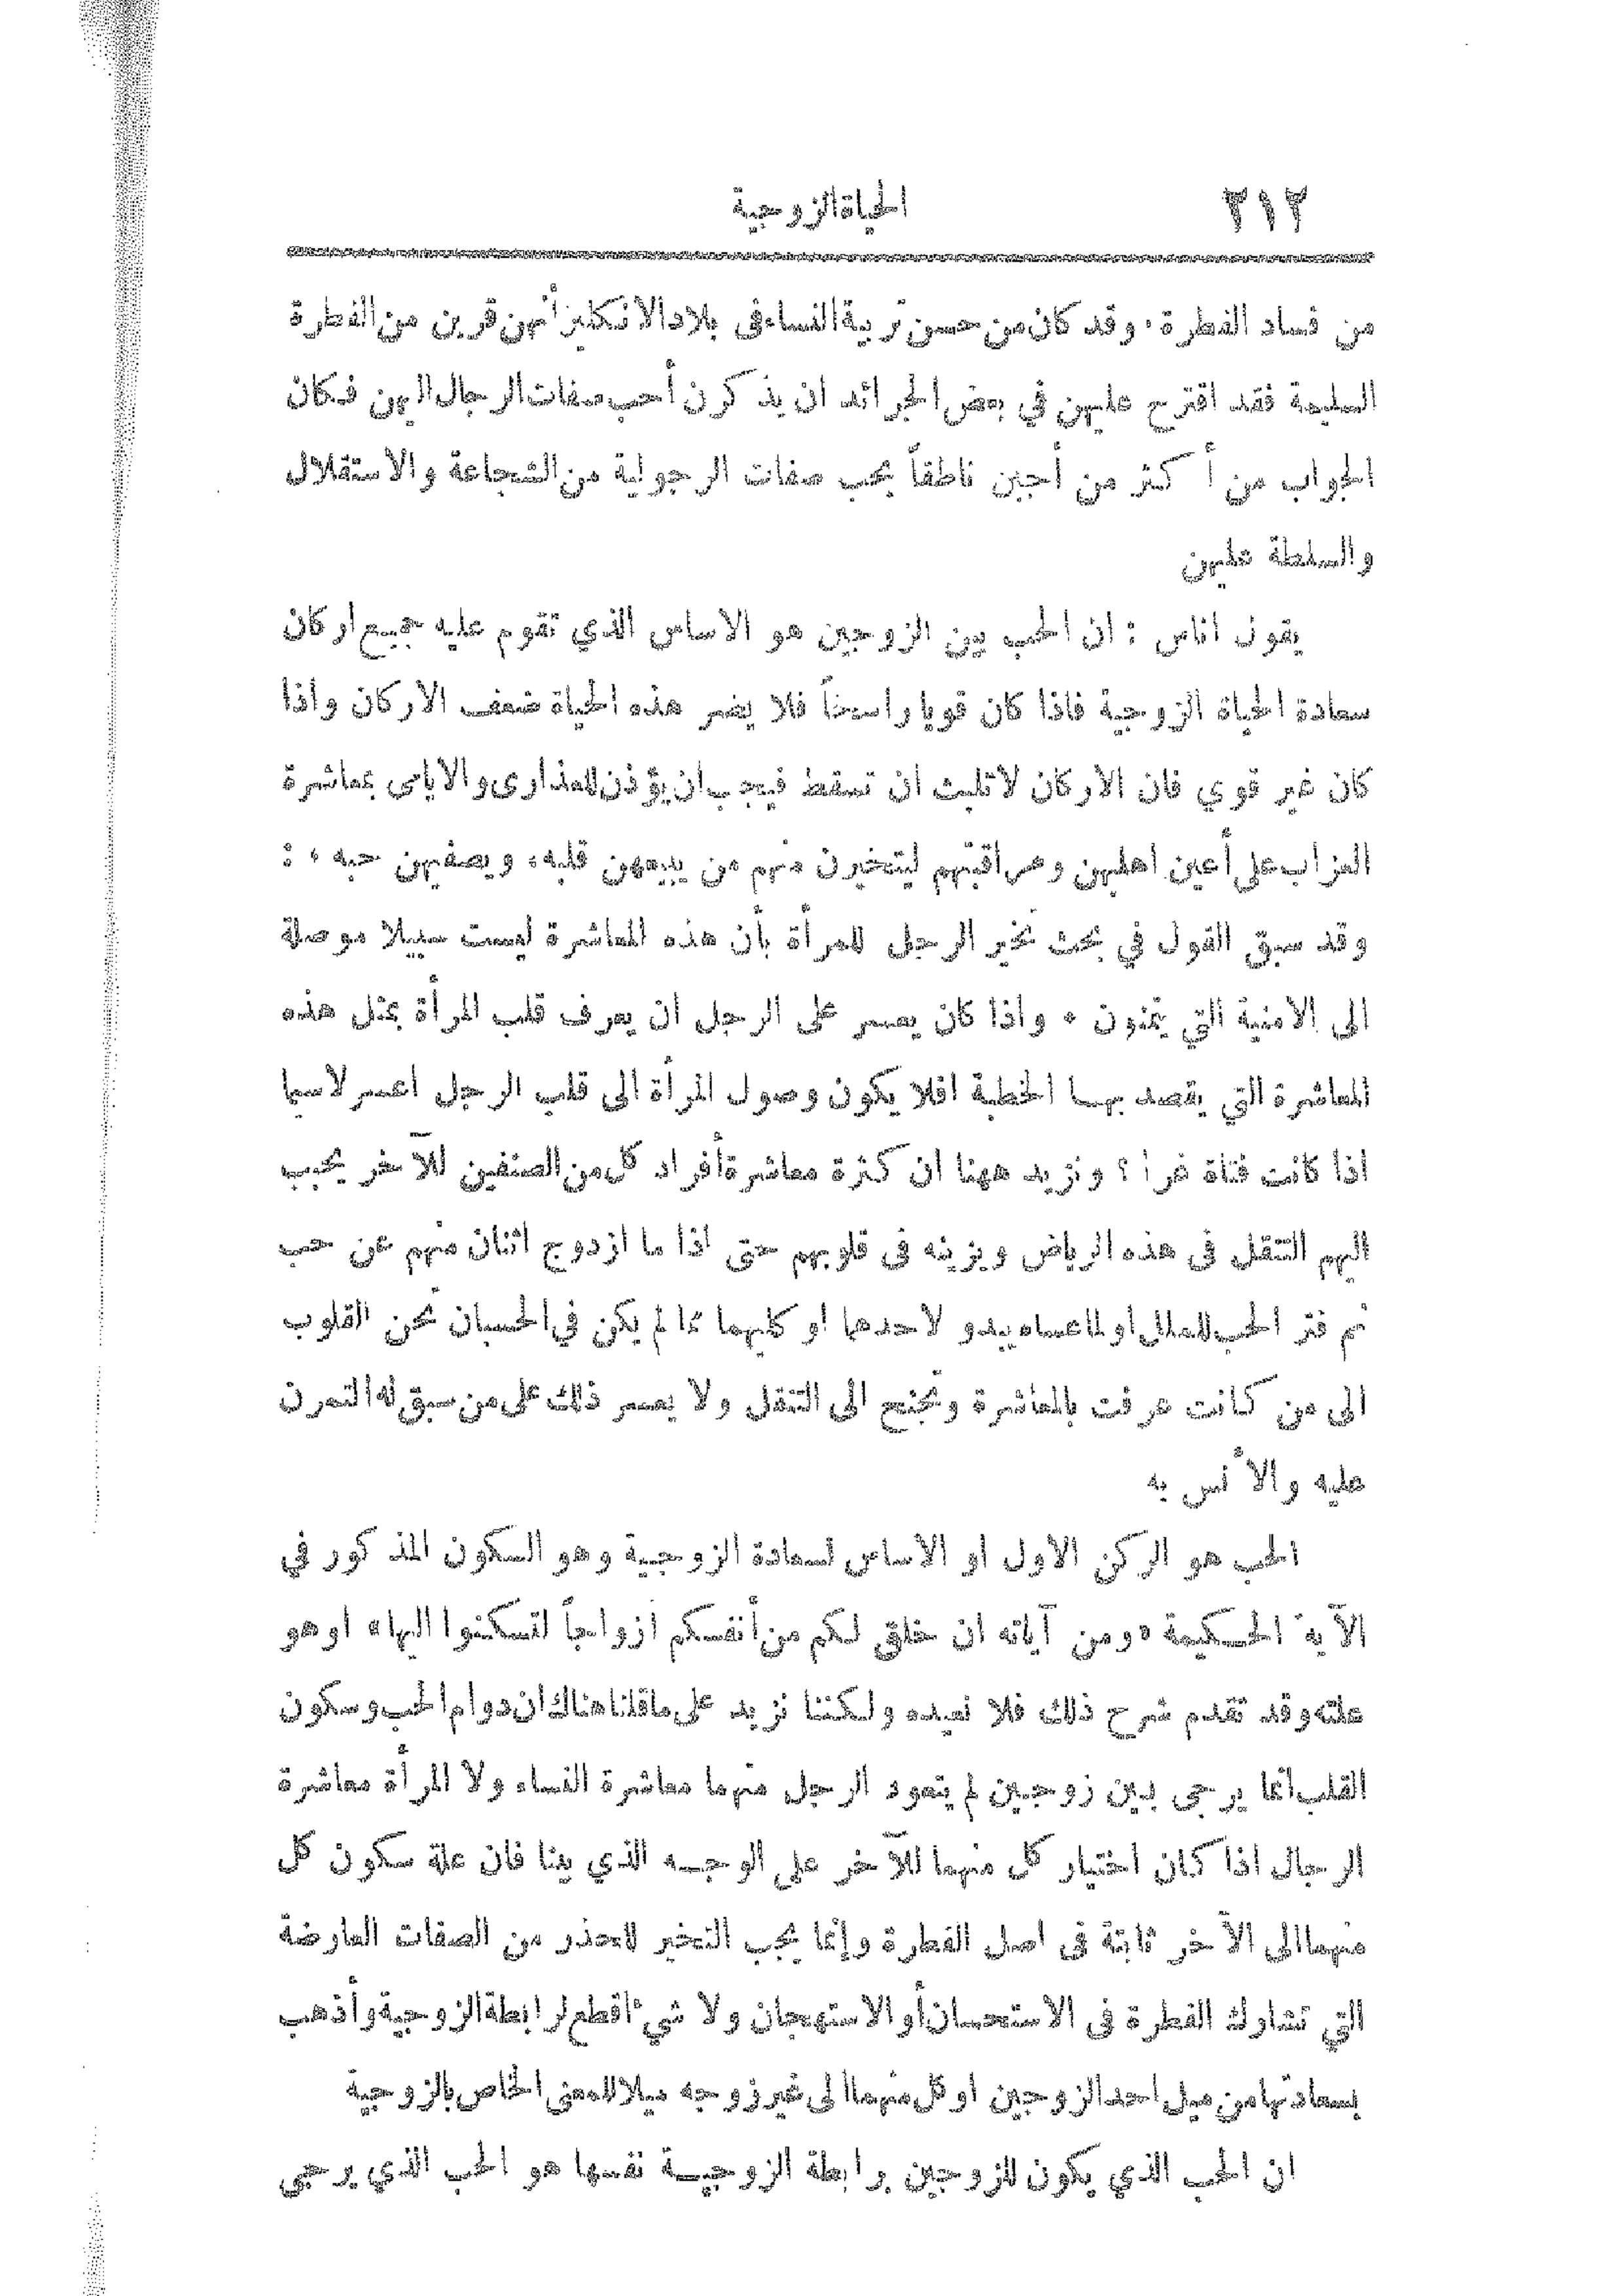 ٣١٢
الحياة الزوجية
من فساد الفطرة . وقد كان من حسن تربية النساء فى بلاد الانكليز أنهن قربن من الفطرة
السليمة فقد اقترح عليهن في بعض الجرائد ان يذكرن أحب صفات الرجال اليهن فكان
الجواب من أكثر من أجبن ناطقاً بحب صفات الرجولية من الشجاعة والاستقلال
والسلطة عليهن
يقول اناس : ان الحب بين الزوجين هو الاساس الذي تقوم عليه جميع اركان
سعادة الحياة الزوجية فاذا كان قويا راسخاً فلا يضر هذه الحياة ضعف الاركان واذا
كان غير قوي فان الاركان لا تلبث ان تسقط فيجب ان يؤذن للعذارى والايامى بمعاشرة
العزاب على أعين اهلهن ومراقبتهم ليتخيرن منهم من يبيعهن قلبه، ويصفيهن حبه ، :
وقد سبق القول في بحث تخير الرجل للمرأة بأن هذه المعاشرة ليست سبيلا موصلة
الى الامنية التي يتمنون . واذا كان يعسر على الرجل ان يعرف قلب المرأة بمثل هذه
المعاشرة التي يقصد بها الخطبة افلا يكون وصول المرأة الى قلب الرجل اعسر لاسيما
اذا كانت فتاة غرا ؟ ونزيد ههنا ان كثرة معاشرة أفراد كل من الصنفين للآخر يحبب
اليهم التنقل فى هذه الرياض ويزينه فى قلوبهم حتى اذا ما ازدوج اثنان منهم عن حب
ثم فتر الحب للملل او لما عساه يبدو لاحدهما او كليهما مما لم يكن في الحسبان تحن القلوب
الى من كانت عرفت بالمعاشرة وتجنح الى التنقل ولا يعسر ذلك على من سبق له التمرن
عليه والأنس به
الحب هو الركن الاول او الاساس لسعادة الزوجية وهو السكون المذكور في
الآية الحكيمة «ومن آياته ان خلق لكم من أنفسكم ازواجاً لتسكنوا اليها» او هو
علته وقد تقدم شرح ذلك فلا نعيده ولكننا نزيد على ما قلنا هناك ان دوام الحب وسكون
القلب انما يرجى بين زوجين لم يتعود الرجل منهما معاشرة النساء ولا المرأة معاشرة
الرجال اذا كان اختيار كل منهما للآخر على الوجه الذي بينا فان علة سكون كل
منهما الى الآخر ثابتة فى اصل الفطرة وإنما يجب التخير للحذر من الصفات العارضة
التي تشارك الفطرة فى الاستحسان أو الاستهجان ولا شيء اقطع لرابطة الزوجية وأذهب
بسعادتها من ميل احد الزوجين او كل منهما الى غير زوجه ميلا للمعنى الخاص بالزوجية
ان الحب الذي يكون للزوجين برابطة الزوجية نفسها هو الحب الذي يرجى